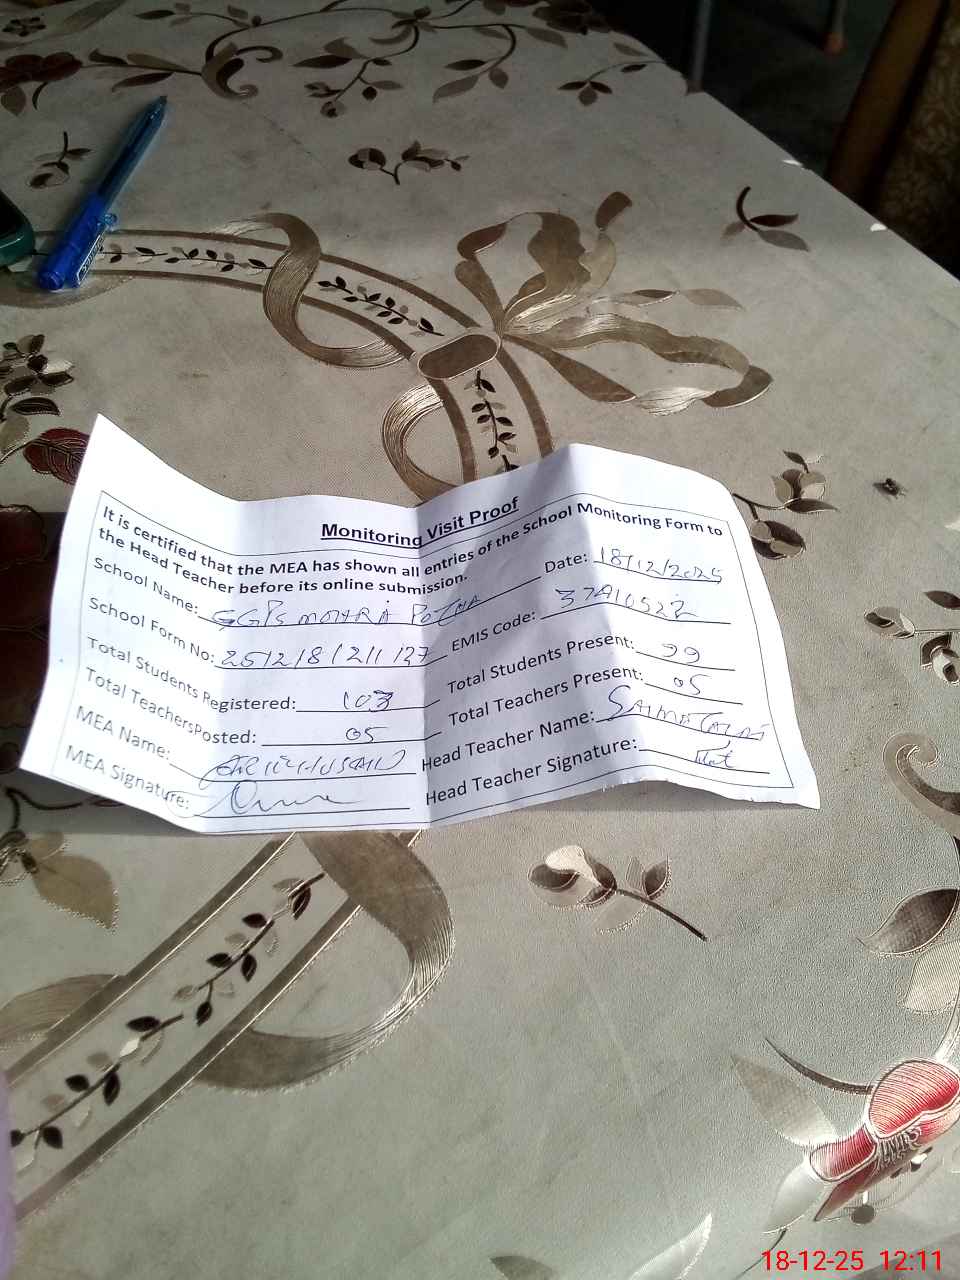 Monitoring Visit Proof
It is certified that the MEA has shown all entries of the School Monitoring Form to
the Head Teacher before its online submission.
School Name: GGPS MOHRA Date: 18/12/2025
School Form No: EMIS Code: 37310522
Total Students Registered: 103 Total Students Present: 99
Total Teachers Posted: 05 Total Teachers Present: 05
MEA Name: HUSSAIN Head Teacher Name: SAIMA
MEA Signature: Head Teacher Signature:
18-12-25 12:11